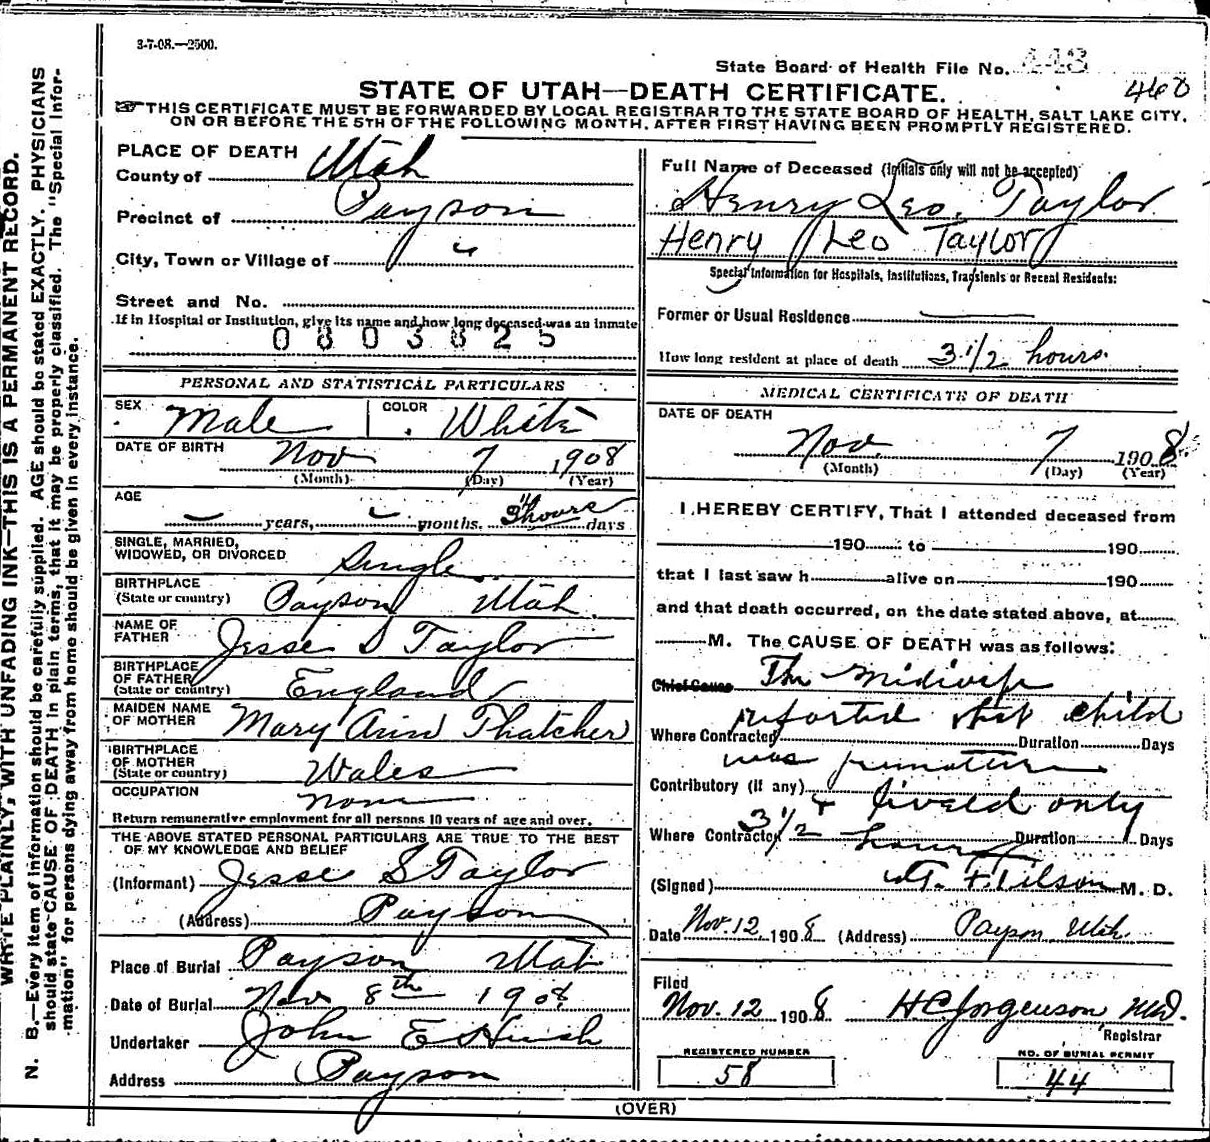 3-7-08.—2500.
State Board of Health File No. 443
460
STATE OF UTAH—DEATH CERTIFICATE.
THIS CERTIFICATE MUST BE FORWARDED BY LOCAL REGISTRAR TO THE STATE BOARD OF HEALTH, SALT LAKE CITY,
ON OR BEFORE THE 5TH OF THE FOLLOWING MONTH, AFTER FIRST HAVING BEEN PROMPTLY REGISTERED.
WRITE PLAINLY, WITH UNFADING INK—THIS IS A PERMANENT RECORD.
N. B.—Every item of information should be carefully supplied. AGE should be stated EXACTLY. PHYSICIANS
should state CAUSE OF DEATH in plain terms, that it may be properly classified. The "Special Infor-
mation" for persons dying away from home should be given in every instance.
PLACE OF DEATH
County of Utah
Precinct of Payson
City, Town or Village of "
Street and No.
If in Hospital or Institution, give its name and how long deceased was an inmate
0803625
PERSONAL AND STATISTICAL PARTICULARS
SEX Male COLOR White
DATE OF BIRTH Nov 7 1908
(Month) (Day) (Year)
AGE
years, months, hours days
SINGLE, MARRIED,
WIDOWED, OR DIVORCED Single
BIRTHPLACE
(State or country) Payson Utah
NAME OF
FATHER Jesse S Taylor
BIRTHPLACE
OF FATHER
(State or country) England
MAIDEN NAME
OF MOTHER Mary Ann Thatcher
BIRTHPLACE
OF MOTHER
(State or country) Wales
OCCUPATION none
Return remunerative employment for all persons 10 years of age and over.
THE ABOVE STATED PERSONAL PARTICULARS ARE TRUE TO THE BEST
OF MY KNOWLEDGE AND BELIEF
(Informant) Jesse S Taylor
(Address) Payson
Place of Burial Payson Utah
Date of Burial Nov 8th 1908
Undertaker John E Huish
Address Payson
Full Name of Deceased (initials only will not be accepted)
Henry Leo. Taylor
Henry Leo Taylor
Special Information for Hospitals, Institutions, Transients or Recent Residents:
Former or Usual Residence
How long resident at place of death 3 1/2 hours.
MEDICAL CERTIFICATE OF DEATH
DATE OF DEATH
Nov. 7 1908
(Month) (Day) (Year)
I HEREBY CERTIFY, That I attended deceased from
190 to 190
that I last saw h alive on 190
and that death occurred, on the date stated above, at
M. The CAUSE OF DEATH was as follows:
Chief Cause The Midwife
reported that child
Where Contracted Duration Days
was premature
Contributory (if any) & lived only
Where Contracted 3 1/2 hours Duration Days
(Signed) Tilson M. D.
Date Nov. 12 1908 (Address) Payson Utah.
Filed
Nov. 12 1908 HC Jorgenson MD.
Registrar
REGISTERED NUMBER
58
NO. OF BURIAL PERMIT
44
(OVER)